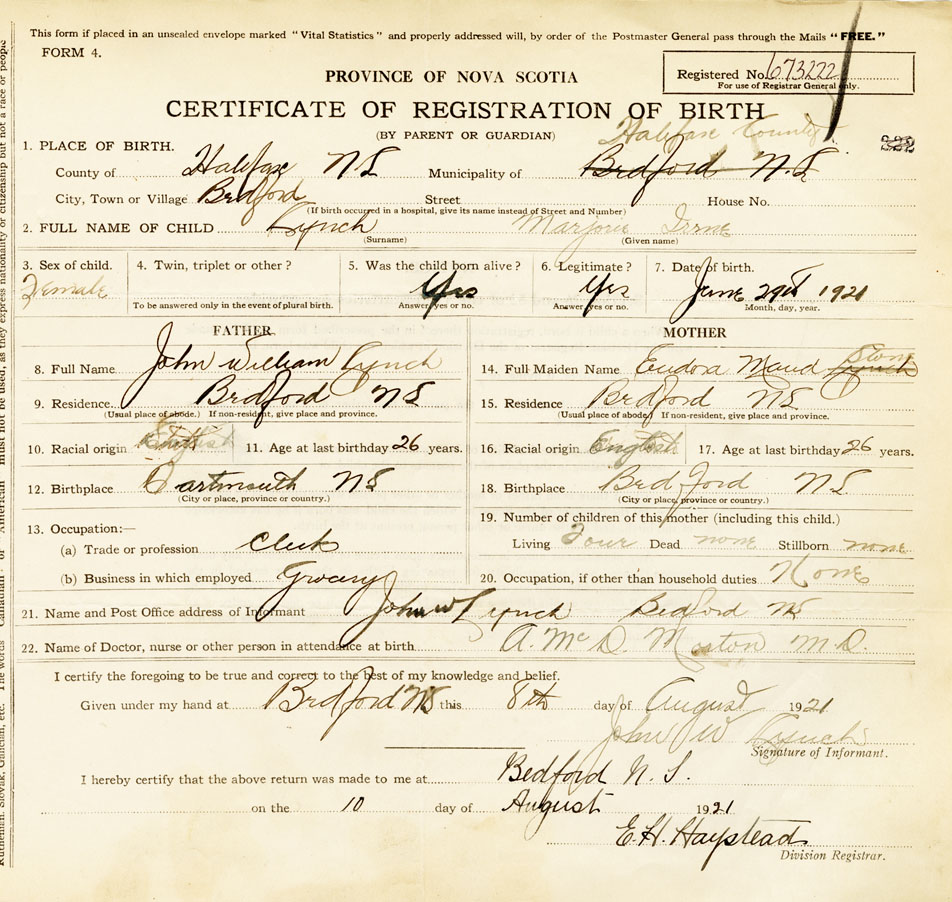 This form if placed in an unsealed envelope marked "Vital Statistics" and properly addressed will, by order of the Postmaster General pass through the Mails "FREE."
FORM 4.
Registered No. 673222
For use of Registrar General only.
PROVINCE OF NOVA SCOTIA
CERTIFICATE OF REGISTRATION OF BIRTH
(BY PARENT OR GUARDIAN)
Halifax County
1. PLACE OF BIRTH.
County of Halifax N S Municipality of Bedford N.S
City, Town or Village Bedford Street House No.
(If birth occurred in a hospital, give its name instead of Street and Number)
2. FULL NAME OF CHILD Lynch Marjorie Irene
(Surname) (Given name)
3. Sex of child. 4. Twin, triplet or other? 5. Was the child born alive? 6. Legitimate? 7. Date of birth.
Female Yes Yes June 29th 1921
To be answered only in the event of plural birth. Answer yes or no. Answer yes or no. Month, day, year.
FATHER MOTHER
8. Full Name John William Lynch 14. Full Maiden Name Eudora Maud Lynch
9. Residence Bedford NS 15. Residence Bedford NS
(Usual place of abode.) If non-resident, give place and province. (Usual place of abode.) If non-resident, give place and province.
10. Racial origin 11. Age at last birthday 26 years. 16. Racial origin English 17. Age at last birthday 26 years.
12. Birthplace Dartmouth NS 18. Birthplace Bedford NS
(City or place, province or country.) (City or place, province or country.)
13. Occupation:— 19. Number of children of this mother (including this child.)
(a) Trade or profession Clerk Living Four Dead none Stillborn none
(b) Business in which employed Grocery 20. Occupation, if other than household duties None
21. Name and Post Office address of Informant John W Lynch Bedford NS
22. Name of Doctor, nurse or other person in attendance at birth. A. McD. Morton M.D.
I certify the foregoing to be true and correct to the best of my knowledge and belief.
Given under my hand at Bedford NS this 8th day of August 1921
John W Lynch
Signature of Informant.
I hereby certify that the above return was made to me at Bedford N. S.
on the 10 day of August 1921
E. H. Haystead
Division Registrar.